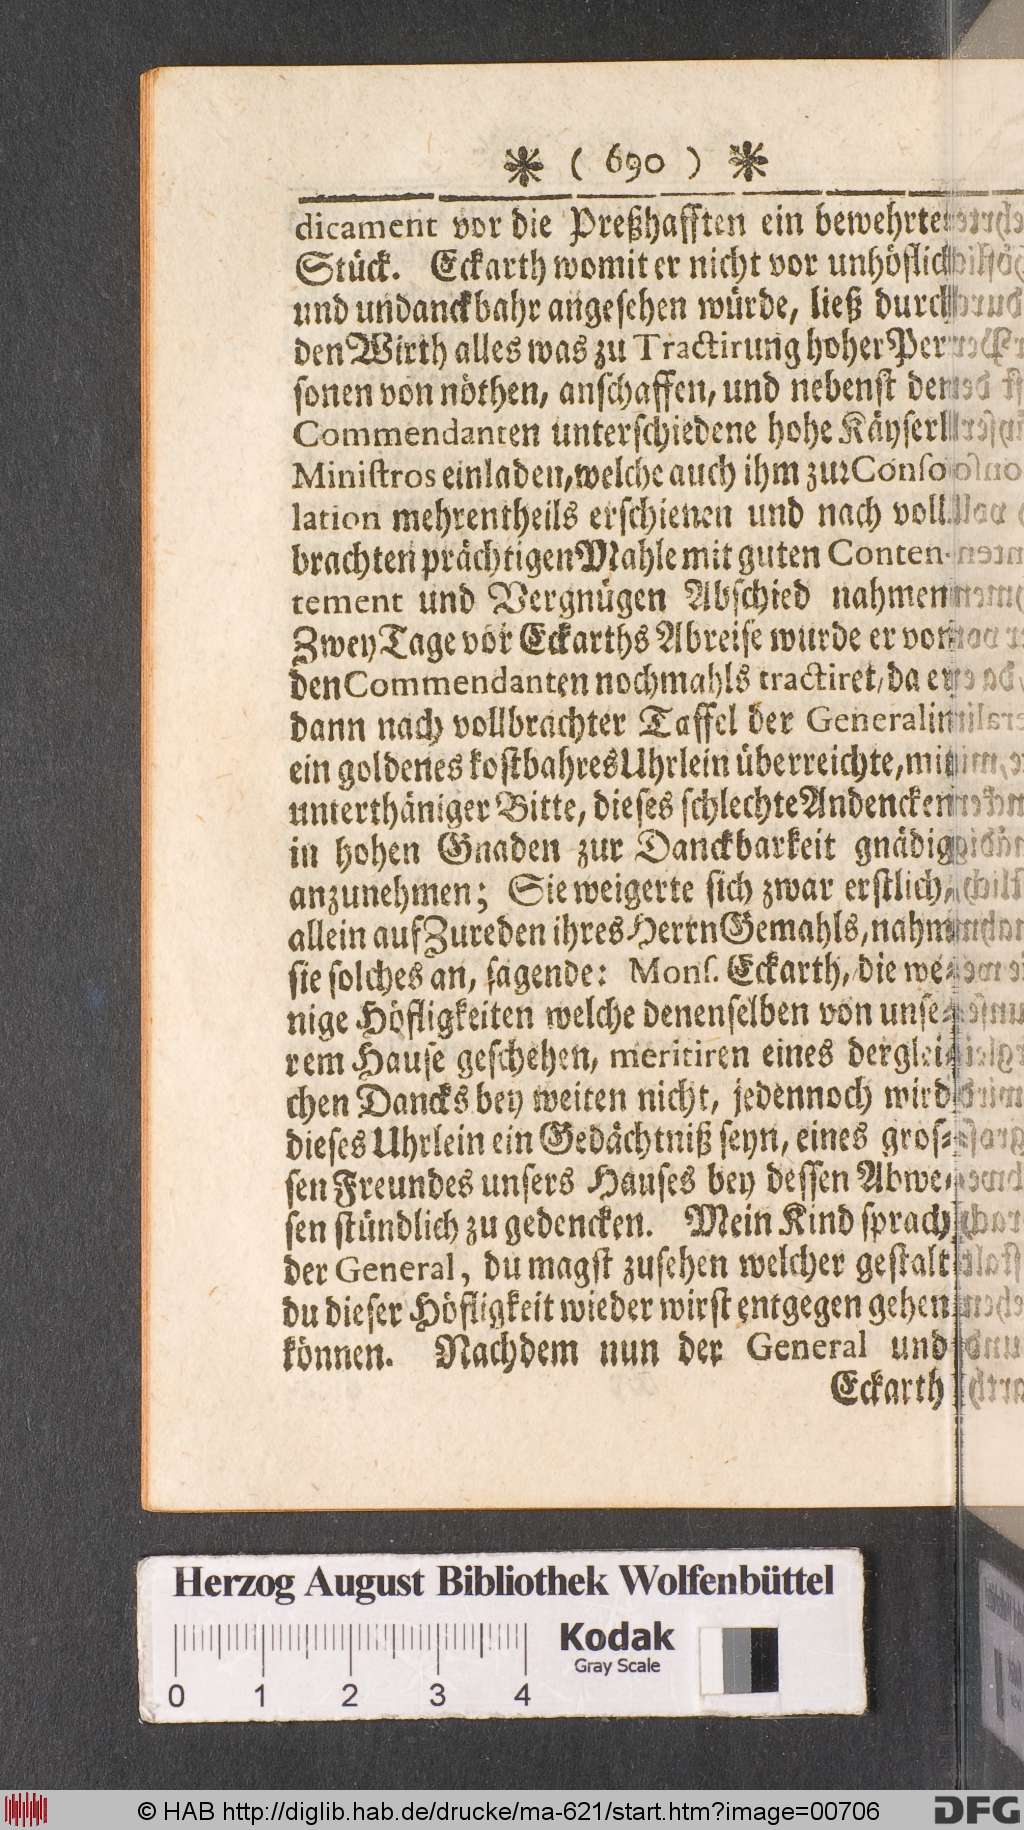 * ( 690 ) *
dicament vor die Preßhafften ein bewehrtes
Stück. Eckarth womit er nicht vor unhöflich
und undanckbahr angesehen würde, ließ durch
den Wirth alles was zu Tractirung hoher Per
sonen von nöthen, anschaffen, und nebenst dem
Commendanten unterschiedene hohe Käyserl.
Ministros einladen, welche auch ihm zur Conso
lation mehrentheils erschienen und nach voll
brachten prächtigen Mahle mit guten Conten-
tement und Vergnügen Abschied nahmen
Zwey Tage vor Eckarths Abreise wurde er von
den Commendanten nochmahls tractiret, da er
dann nach vollbrachter Taffel der Generalin
ein goldenes kostbahres Uhrlein überreichte, mit
unterthäniger Bitte, dieses schlechte Andencken
in hohen Gnaden zur Danckbarkeit gnädig
anzunehmen; Sie weigerte sich zwar erstlich,
allein auf Zureden ihres Herrn Gemahls, nahm
sie solches an, sagende: Mons. Eckarth, die we-
nige Höfligkeiten welche denenselben von unse-
rem Hause geschehen, meritiren eines derglei-
chen Dancks bey weiten nicht, jedennoch wird
dieses Uhrlein ein Gedächtniß seyn, eines gros-
sen Freundes unsers Hauses bey dessen Abwe-
sen stündlich zu gedencken. Mein Kind sprach
der General, du magst zusehen welcher gestalt
du dieser Höfligkeit wieder wirst entgegen gehen
können. Nachdem nun der General und
Eckarth
Herzog August Bibliothek Wolfenbüttel
Kodak
Gray Scale
0 1 2 3 4
© HAB http://diglib.hab.de/drucke/ma-621/start.htm?image=00706
DFG